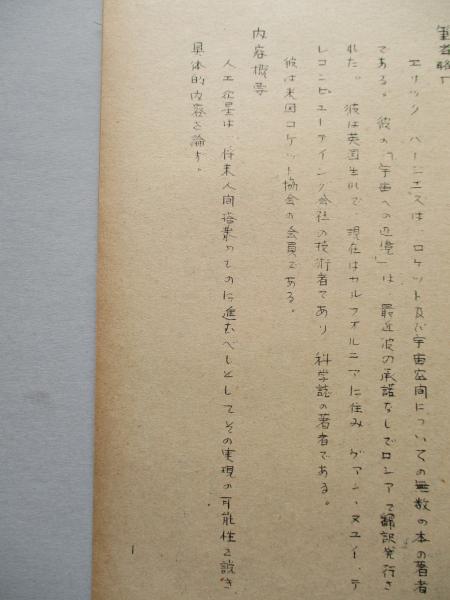 エリック バーニエスは、ロケット及び宇宙空間についての無数の本の著者
である。彼の「宇宙への辺境」は、最近彼の承諾なしでロシアで翻訳発行さ
れた。彼は英国生れで、現在はカルフォルニアに住み ヴァン・ヌユイ、テ
レコンピューテイング会社の技術者であり 科学誌の著者である。
彼は米国ロケット協会の会員である。
内容概要
人工衛星は、将来人間搭乗のものに進むべしとしてその実現の可能性を説き
具体的内容を論す。
1